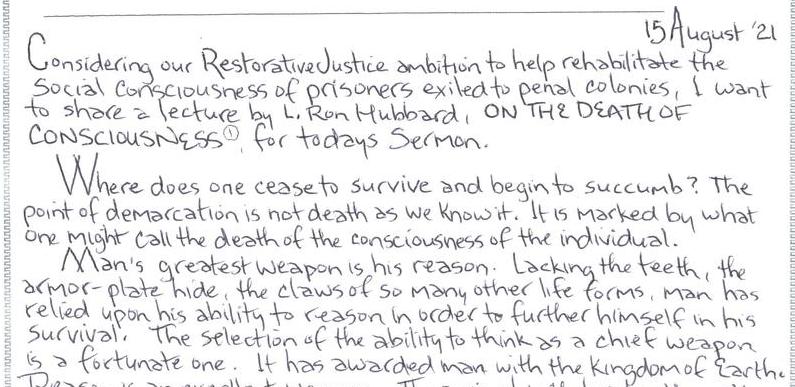 15 August '21
Considering our Restorative Justice ambition to help rehabilitate the
Social Consciousness of prisoners exiled to penal colonies, I want
to share a lecture by L. Ron Hubbard, ON THE DEATH OF
CONSCIOUSNESS①, for todays Sermon.
Where does one cease to survive and begin to succumb? The
point of demarcation is not death as we know it. It is marked by what
one might call the death of the consciousness of the individual.
Man's greatest weapon is his reason. Lacking the teeth, the
armor-plate hide, the claws of so many other life forms, man has
relied upon his ability to reason in order to further himself in his
survival. The selection of the ability to think as a chief weapon
is a fortunate one. It has awarded man with the kingdom of Earth.